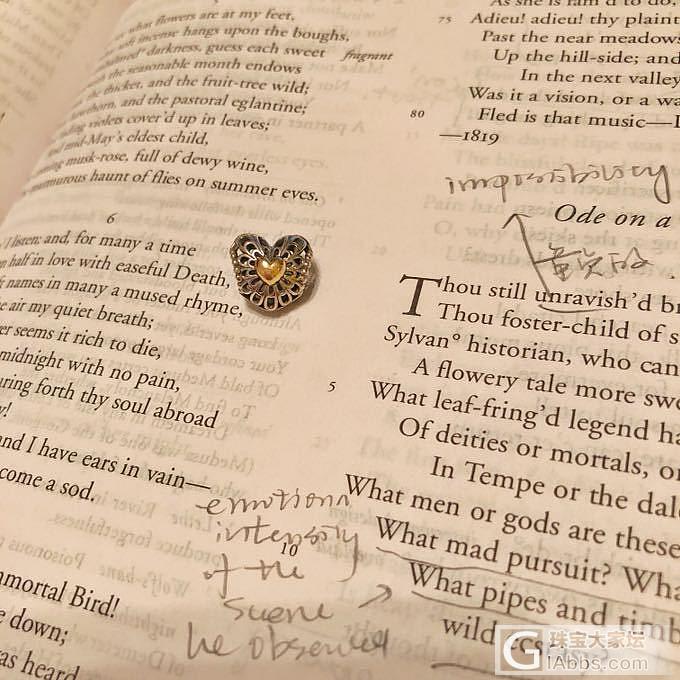 what flowers are at my feet,
soft incense hangs upon the boughs,
darkness, guess each sweet fragrant
the seasonable month endows
thicket, and the fruit-tree wild;
and the pastoral eglantine;
violets cover'd up in leaves;
mid-May's eldest child,
musk-rose, full of dewy wine,
murmurous haunt of flies on summer eves.
6
listen; and, for many a time
half in love with easeful Death,
names in many a mused rhyme,
air my quiet breath;
seems it rich to die,
midnight with no pain,
forth thy soul abroad
and I have ears in vain—
come a sod.
mmortal Bird!
e down;
as heard
75 Adieu! adieu! thy plaint
Past the near meadows
Up the hill-side; and
In the next valley
Was it a vision, or a wa
80 Fled is that music—
—1819
Ode on a
Thou still unravish'd br
Thou foster-child of s
Sylvan° historian, who can
A flowery tale more swe
5 What leaf-fring'd legend ha
Of deities or mortals, or
In Tempe or the dal
What men or gods are these
What mad pursuit? Wha
10 What pipes and timb
wild ecs
emotional
intensity
of the
scene
he observed
G 珠宝大家坛
iAbbs.com